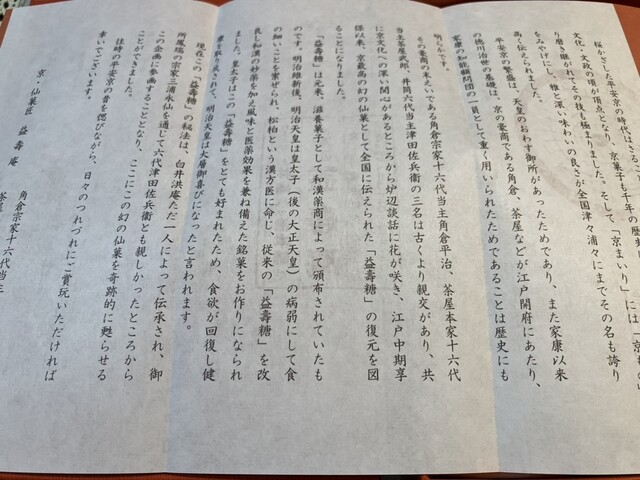 桜かざした平安京の時代はるるこ
文化・文政の頃が頂点となり、京菓子も千年の歴史に
り磨き継がれてその技も極まりました。そして「京まいり」には「京
をみやげにし、雅と深い味わいの良さが全国津々浦々にまでその名も誇り
高く伝えられました。
平安京の繁盛は、天皇のおわす御所があったためであり、また家康以来
の徳川治世の基礎は、京の豪商である角倉、茶屋などが江戸開府にあたり、
家康の知恵顧問団の一員として重く用いられたためであることは歴史にも
明らかです。
その豪商の末えいである角倉宗家十六代当主角倉平治、茶屋本家十六代
当主茶屋武郎、井筒六代当主津田佐兵衛の三名は古くより親交があり、共
に京文化への深い関心があるところから炉辺談話に花が咲き、江戸中期享
保以来、京最高の幻の仙菓として全国に伝えられた「益壽糖」の復元を図
ることになりました。
「益壽糖」は元来、滋養菓子として和漢薬商によって頒布されていたも
のです。明治維新後、明治天皇は皇太子（後の大正天皇）の病弱にして食
の細いことを案ぜられ、松柏という漢方医に命じ、従来の「益壽糖」を改
良し和漢の妙薬を加え風味と医薬効果を兼ね備えた銘菓をお作りになられ
ました。皇太子はこの「益壽糖」をとても好まれたため、食欲が回復し健
康を取り戻されて、明治天皇は大層御喜びになったと言われます。
現在この「益壽糖」の秘法は、白井洪庵ただ一人によって伝承され、御
所風瑞の宗家三浦永仙を通じて六代津田佐兵衛とも親しかったところから
この企画に参画することとなり、ここにこの幻の仙菓を奇跡的に甦らせる
ことができました。
往時の平安京の昔を偲びながら、日々のつれづれにご賞玩いただければ
幸いでございます。
京・仙菓匠 益壽庵
角倉宗家十六代当主
茶屋